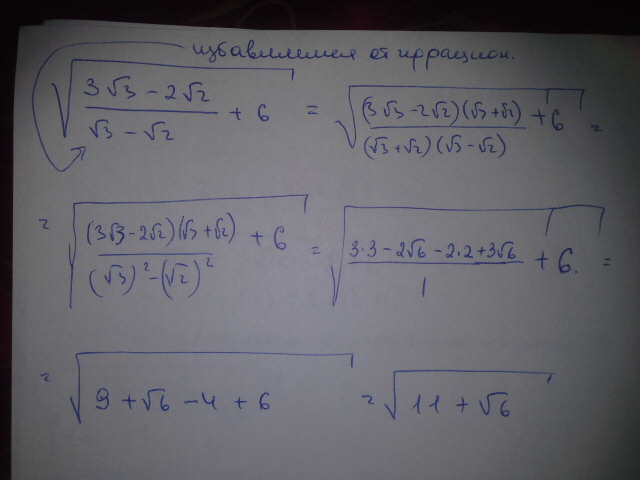 избавляемся от иррацион.
√((3√3 - 2√2)/(√3 - √2) + 6) = √((3√3 - 2√2)(√3 + √2)/((√3 + √2)(√3 - √2)) + 6) =
= √((3√3 - 2√2)(√3 + √2)/((√3)² - (√2)²) + 6) = √((3·3 - 2√6 - 2·2 + 3√6)/1 + 6. =
= √(9 + √6 - 4 + 6) = √(11 + √6)